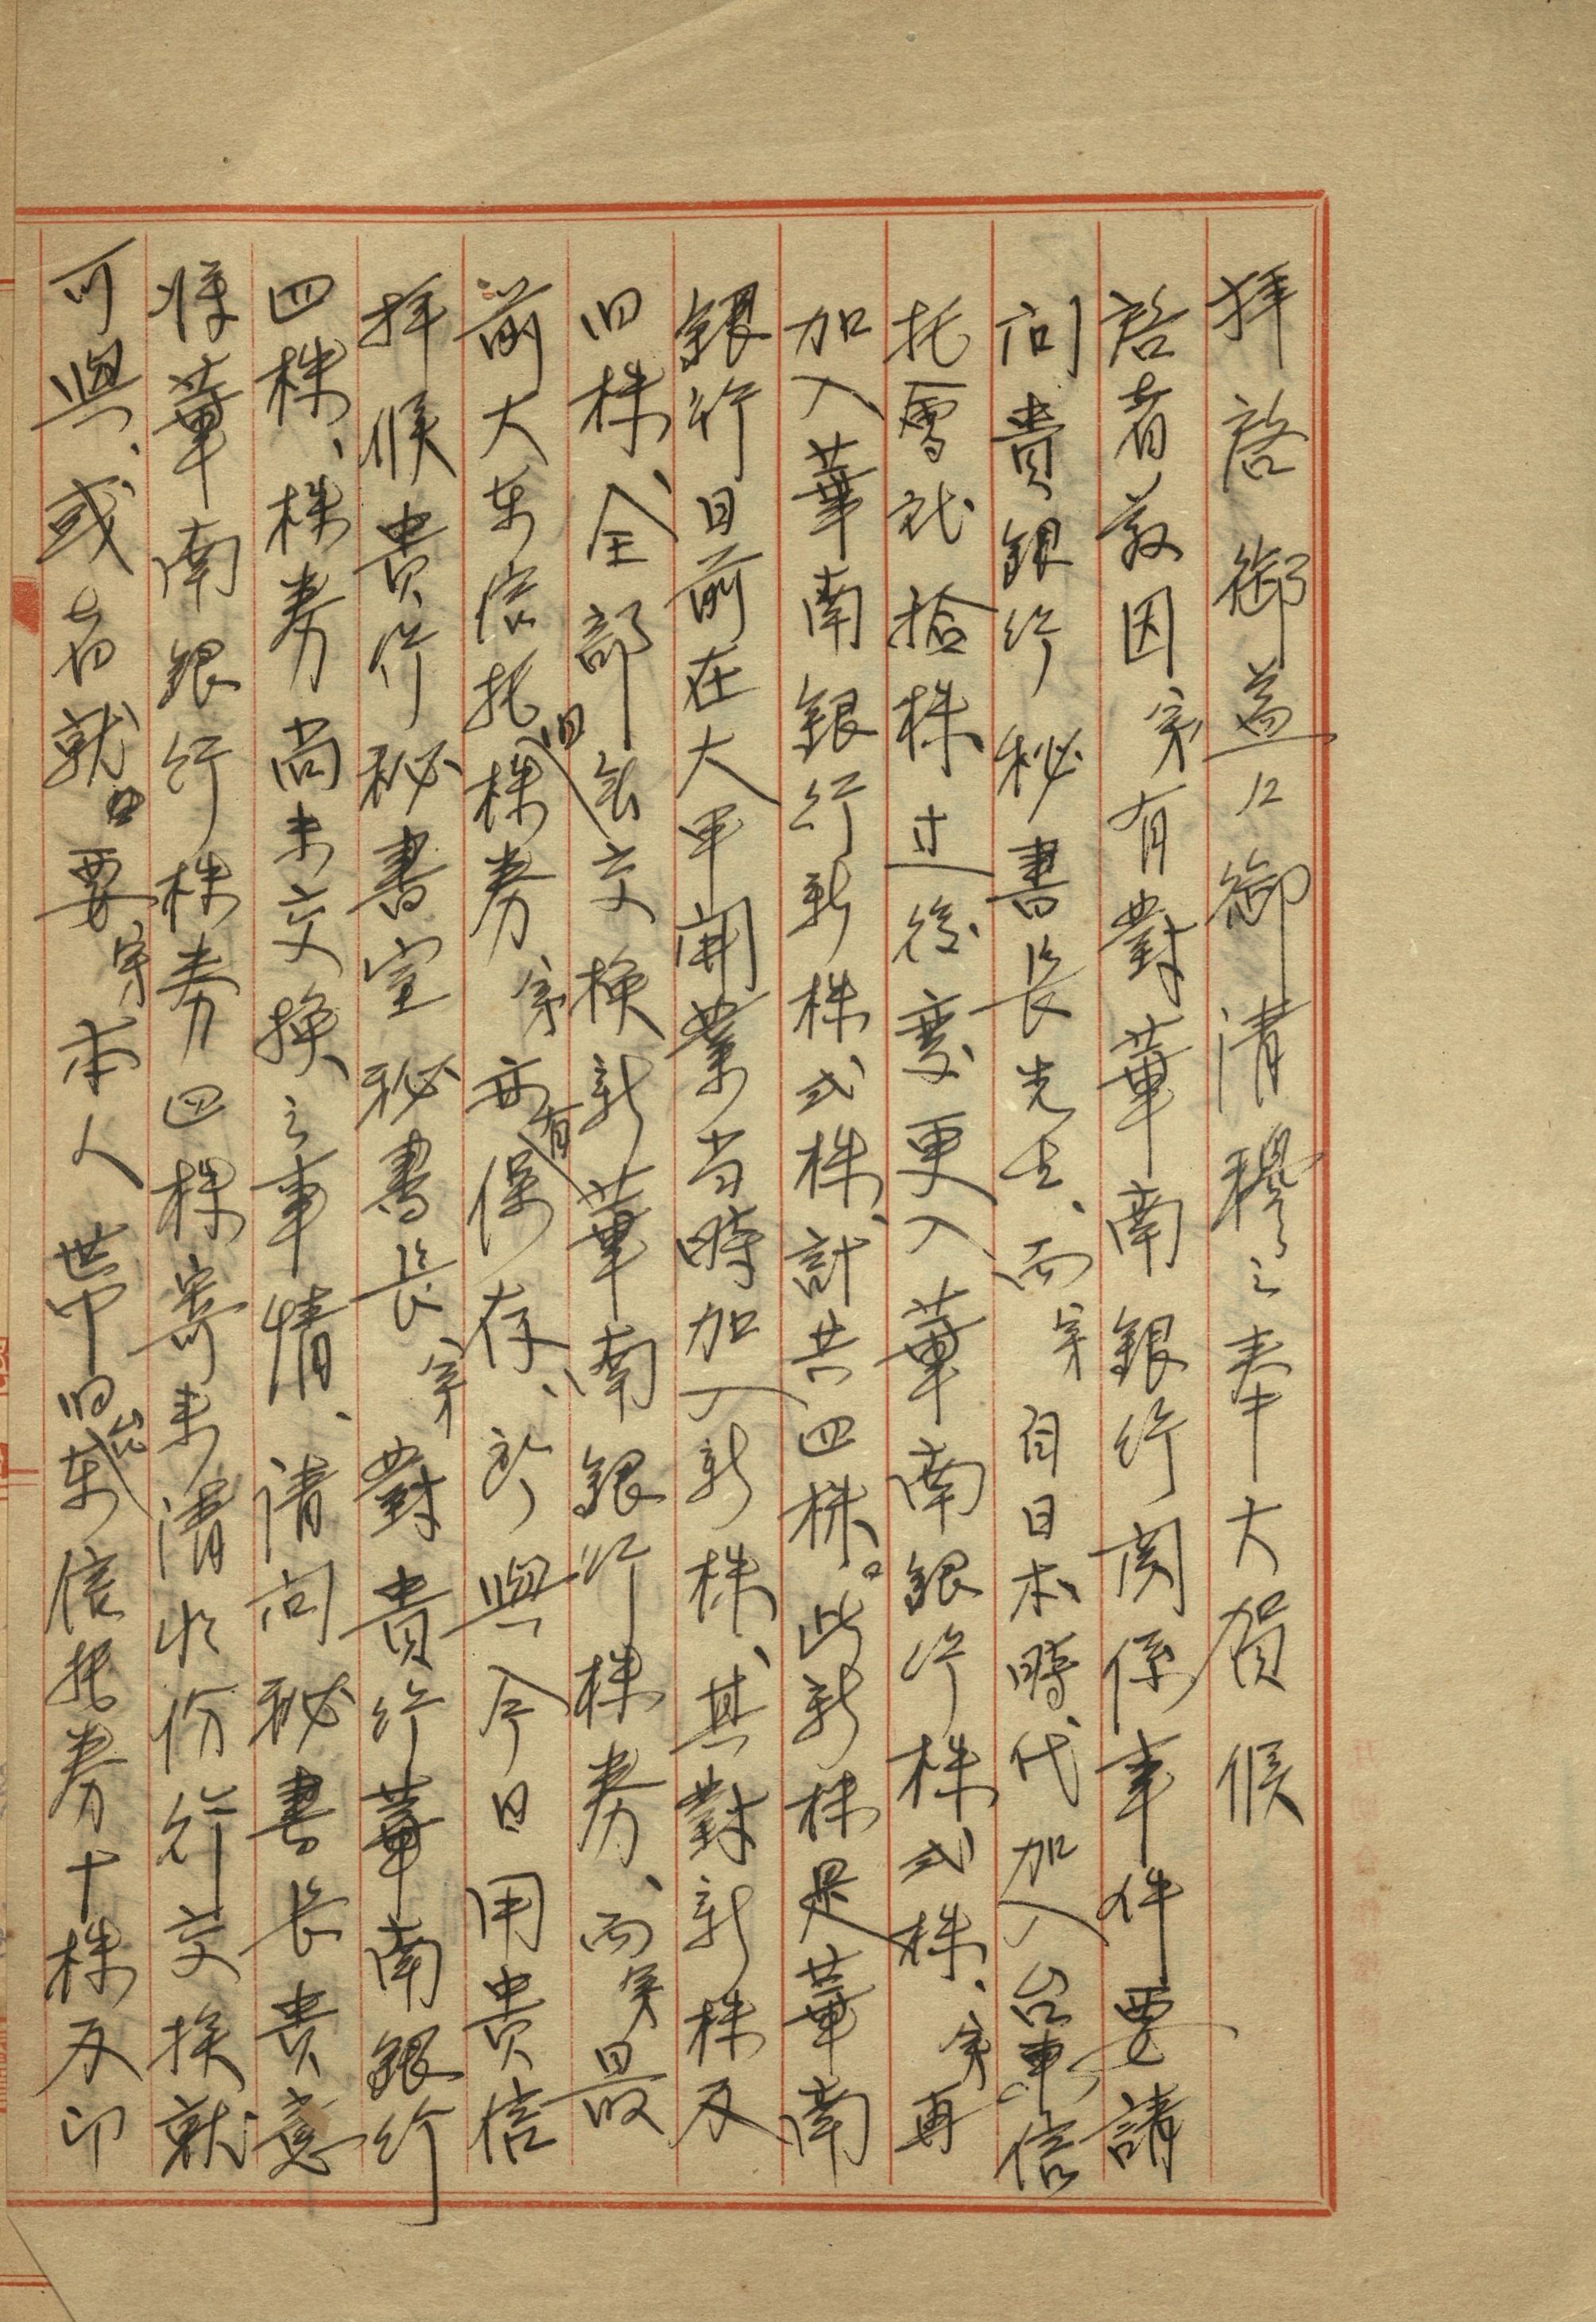 拜啓御益々御清穆之奉大賀候
啓者茲因弟有對華南銀行関係事件要請
问貴銀行秘書長先生、而弟自日本時代加入台東信
托會社拾株过後变更入華南銀行株弍株、弟再
加入華南銀行新株弍株、計共四株。此新株是華南
銀行日前在大甲開業当時加入新株、其對新株及
旧株、全部旧会交換新華南銀行株券、而弟最
前大东信托旧株券、弟亦有保存、所與今日用貴信
拝候貴行秘書室秘書長、弟對貴行華南銀行
四株、株券尚未交換之事情、请问秘書長貴意
将華南銀行株券四株寄来清水份行交换就
可與、或者就要弟本人帯旧台东信托券十株及印